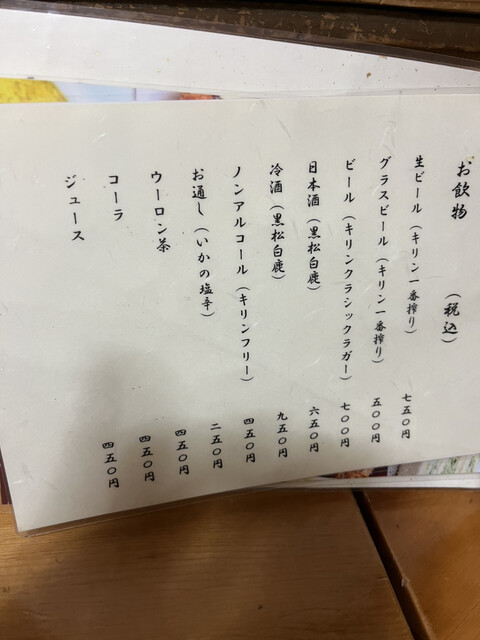 お飲物　（税込）
生ビール（キリン一番搾り）　七五〇円
グラスビール（キリン一番搾り）　五〇〇円
ビール（キリンクラシックラガー）　七〇〇円
日本酒（黒松白鹿）　六五〇円
冷酒（黒松白鹿）　九五〇円
ノンアルコール（キリンフリー）　四五〇円
お通し（いかの塩辛）　二五〇円
ウーロン茶　四五〇円
コーラ　四五〇円
ジュース　四五〇円